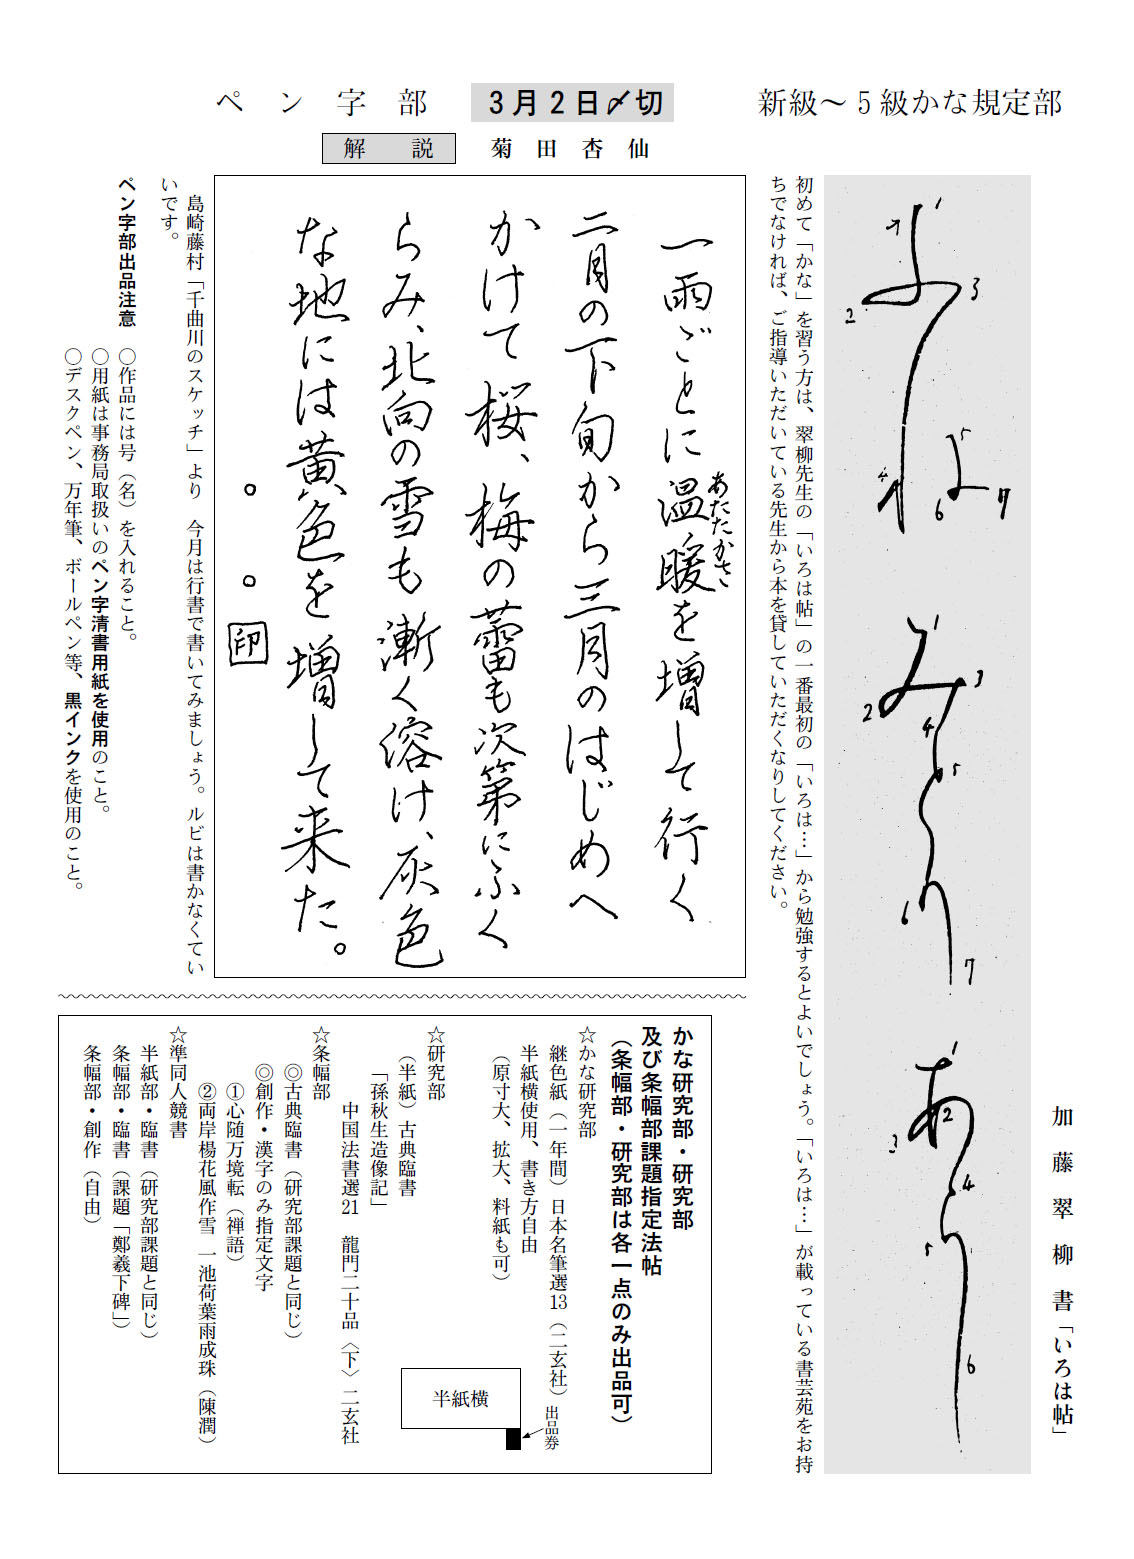 新級～5級かな規定部
3月2日〆切
ペン字部
加藤翠柳書「いろは帖」
1
2
3
4
5
6
7
1
2
3
4
5
6
7
1
2
3
4
5
6
初めて「かな」を習う方は、翠柳先生の「いろは帖」の一番最初の「いろは…」から勉強するとよいでしょう。「いろは…」が載っている書芸苑をお持
ちでなければ、ご指導いただいている先生から本を貸していただくなりしてください。
解説 菊田杏仙
一雨ごとに温暖を増して行く
あたたかさ
二月の下旬から三月のはじめへ
かけて桜、梅の蕾も次第にふく
らみ、北向の雪も漸く溶け、灰色
な地には黄色を増して来た。
。。印
島崎藤村「千曲川のスケッチ」より 今月は行書で書いてみましょう。ルビは書かなくてい
いです。
ペン字部出品注意 ○作品には号（名）を入れること。
○用紙は事務局取扱いのペン字清書用紙を使用のこと。
○デスクペン、万年筆、ボールペン等、黒インクを使用のこと。
かな研究部・研究部
及び条幅部課題指定法帖
（条幅部・研究部は各一点のみ出品可）
☆かな研究部
継色紙（一年間）日本名筆選13（二玄社）
半紙横使用、書き方自由
（原寸大、拡大、料紙も可）
半紙横
出品券
☆研究部
（半紙）古典臨書
「孫秋生造像記」
中国法書選21 龍門二十品〈下〉二玄社
☆条幅部
◎古典臨書（研究部課題と同じ）
◎創作・漢字のみ指定文字
①心随万境転（禅語）
②両岸楊花風作雪 一池荷葉雨成珠（陳潤）
☆準同人競書
半紙部・臨書（研究部課題と同じ）
条幅部・臨書（課題「鄭羲下碑」）
条幅部・創作（自由）